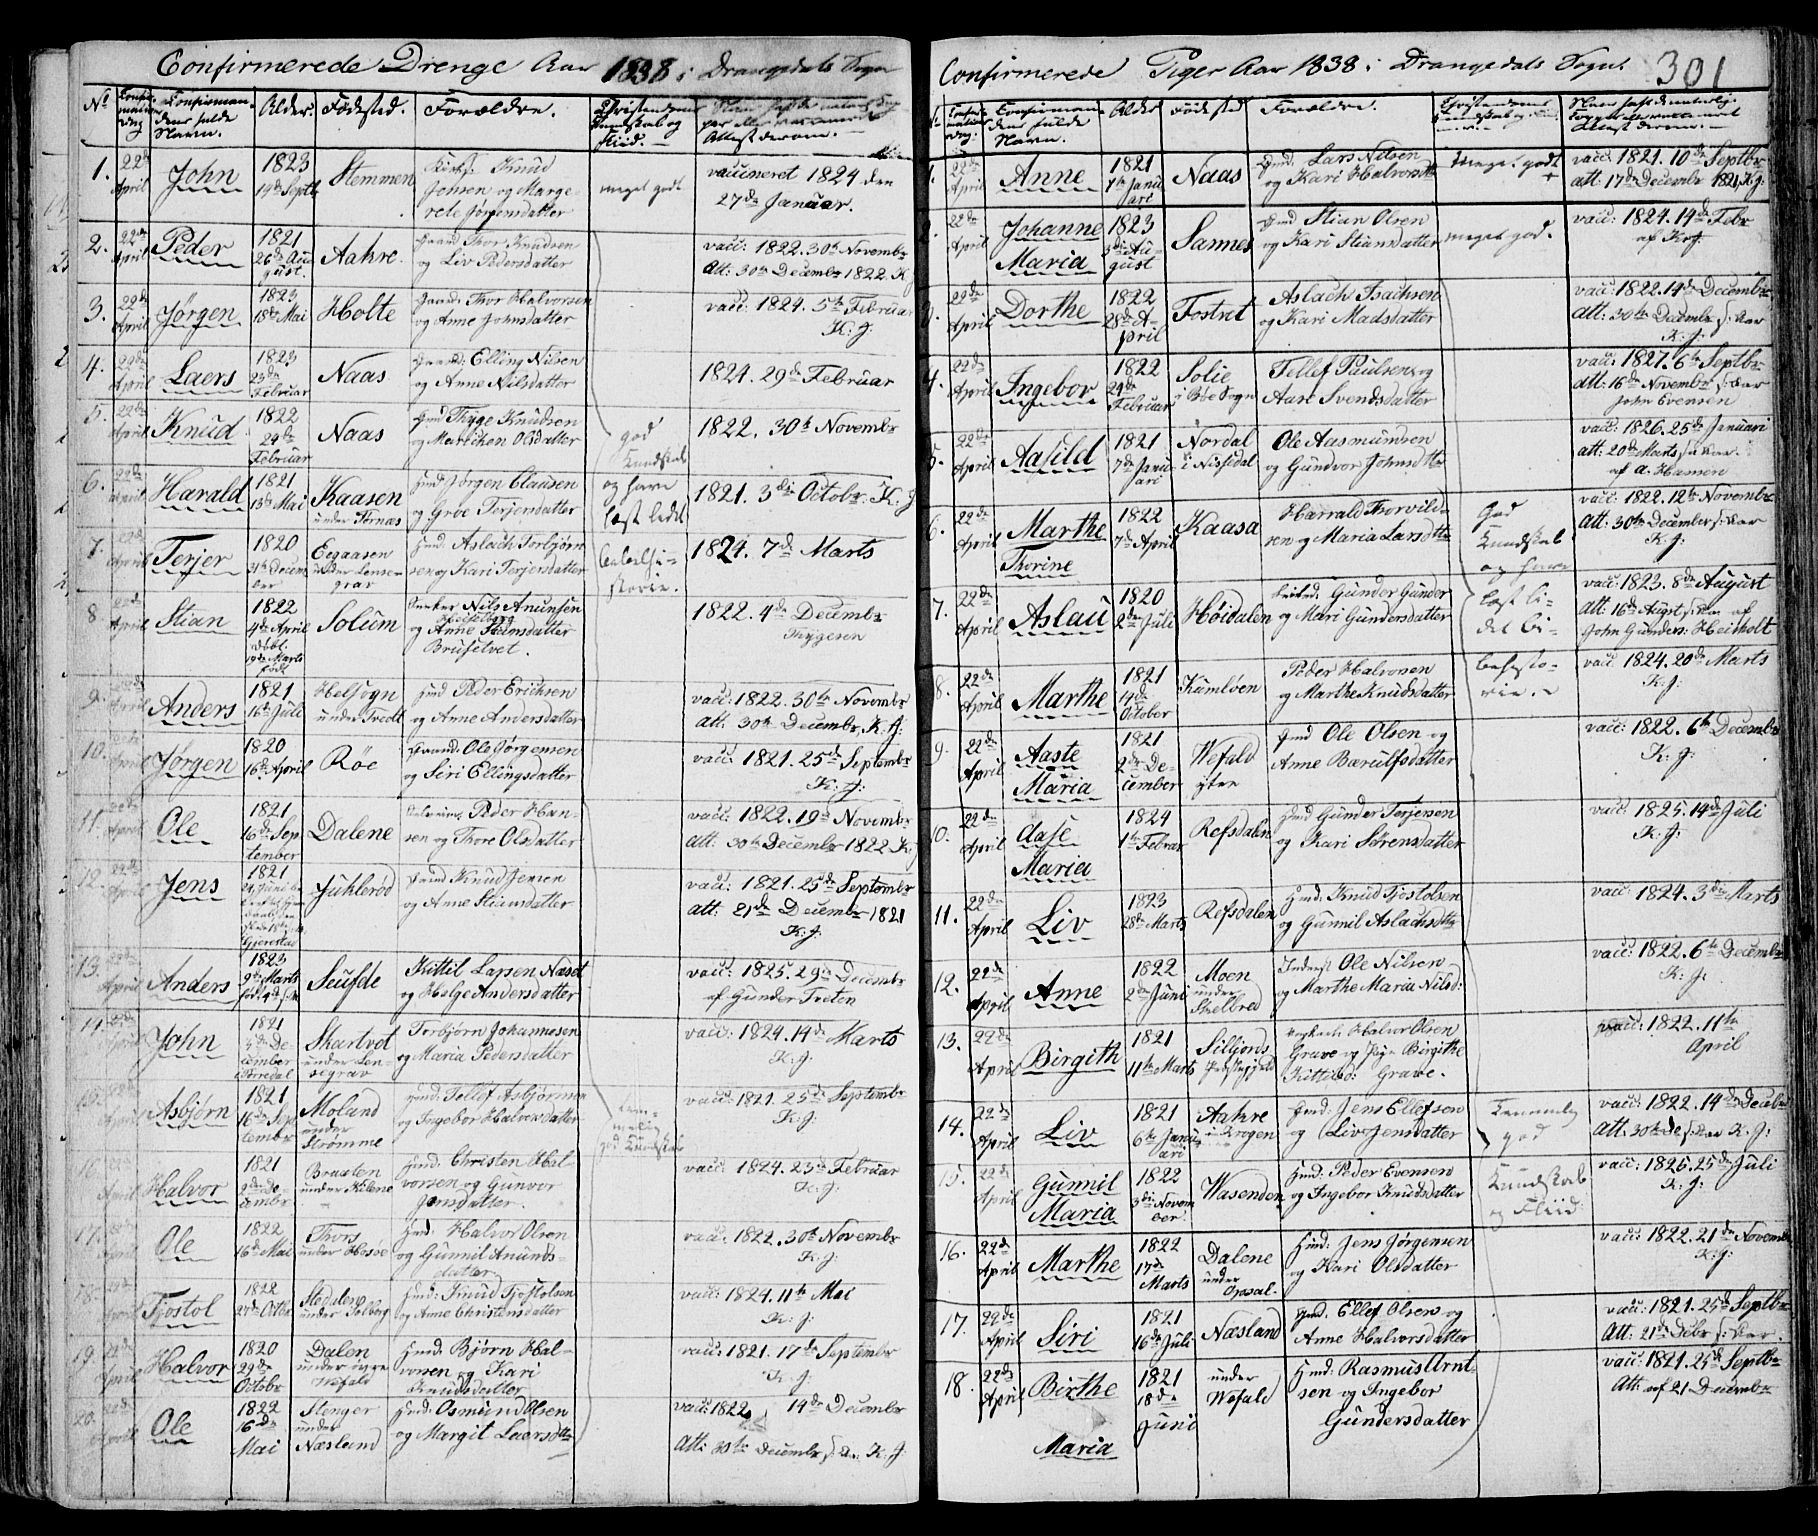 Confirmerede Drenge Aar 1838 i Drangedals Sogn
No Confirmations dag Confirmandens fulde Navn. Alder. Födested. Forældre. Christendoms Kundskab og Fliid.
1. 22de April John 1823 14de Septb Stemmen Knud Johsen og Margerete Jørgensdatter meget godt vaccineret 1824 den 27de Januar.
2. 22de April Peder 1821 26de August Aahre. Thor Knudsen og Liv Pedersdatter vacc: 1822. 30te Novembr Att: 30te Decembr 1822. K. J
3. 22de April Jørgen 1823 18de Mai Holte Thor Halvorsen og Anne Johnsdatter vacc: 1824. 5te Februar K. J:
4. 22de April Laers 1823 23de Februar Naas Elling Nilsen og Anne Nilsdatter 1824. 29de Februar
5. 22de April Knud 1822 24de Februar Naas Thyge Knudsen og Mariken Olsdatter 1822. 30te Novembr
6. 22de April Harald 1821 13de Mai Kaasen under Tørnæs Jørgen Clausen og Groe Terjersdatter god Kundskab og have læst lidet 1821. 3die Octobr. K. J
7. 22de April Terjer 1820 21de December Eegaasen under Lensegrav Aslach Torbjørnsen og Kari Terjersdatter bibelhistorie. 1824. 7de Marts
8 22de April Stian 1822 4de April Döbt. 19de Marts födt Solum Nils Anunsen og Anne Stiansdatter Brusetvet. 1822. 4de Decembr Thygesen
9. 22de April Anders 1821 16de Juli Helsogn under Tvedt Peder Erichsen og Anne Andersdatter vacc: 1822. 30te Novembr Att: 30te Decembr, K. J:
10. 22de April Jørgen 1820 16de April Röe Ole Jørgensen og Siri Ellingsdatter vacc: 1821. 25de Septembr K. J:
11. 22de April Ole 1821 16de September Dalene Peder Hansen og Thore Olsdatter vacc: 1822. 19de Novembr Att: 30te Decembr 1822 K J
12. 22de April Jens 1821 Gjerestad Juhlerød Knud Jensen og Anne Stiansdatter vacc: 1821. 25de Septembr Att: 21de Decembr 1821 K. J:
13. 22de April Anders 1823 9de Marts Seufde Kittil Larsen Næset og Helge Andersdatter vacc: 1825. 29de Decembr af Gunder Treten
14. 22de April John 1821 December i Törredal Skartvet under Lensegrav Torbjörn Johannesen og Maria Pedersdatter vacc: 1824. 14de Marts K. J:
15. 22de April Asbjørn 1821 16de September Moland under Strömme Tellef Asbjörnsen og Ingebor Halvorsdatter temmelig god Kundskab vacc: 1821. 25de Septembr K. J:
16. 22de April Halvor 1821 2de December Braaten under Kilene Christen Halvorsen og Gunvor Jensdatter. vacc: 1824. 23de Februar K. J:
17. 22de April Ole 1822 16de Mai Thors under Hosöe Halvor Olsen og Gunnil Anundsdatter vacc: 1822. 30te Novembr K. J:
18. 22de April Tjostol 1822 27de Octbr Stedalen under Solberg Knud Tjostolsen og Anne Christensdatter vacc: 1824. 11te Mai K. J:
19. 22de April Halvor 1820 29de Octobr Dalen under övre Wefald Bjørn Halvorsen og Kari Knudsdatter vacc: 1821. 17de Septembr K. J:
20. 22de April Ole 1822 16de Mai Stenger under Næsland Osmund Olsen og Margit Laersdtr vacc: 1822 14de Decembr Att: 30te Decembr K. J
Confirmerede Piger Aar 1838 i Drangedals Sogn. 301
Confirmations dag: Confirmandens fulde Navn. Alder Födested Forældre. Christendoms Kundskab og
1. 22de April Anne 1821 7de Januari Naas Lars Nilsen og Kari Halvorsdtr meget godt vacc: 1821. 10de Septbr att: 17de Decembr 1821, K. J:
2. 22de April Johanne Maria 1823 3die August Sannes Stian Olsen og Kari Stiansdatter meget god. vacc: 1824. 14de Febr af K. J.
3. 22de April Dorthe 1822 28de April Fostret Aslach Isachsen og Kari Madsdatter vacc: 1822. 14de Decembr Att: 30te Decembr K. J:
4. 22de April Ingebor 1822 24de Februar Solie i Böe Sogn Tellef Paulsen og Aase Svendsdatter vacc: 1827. 6te Septbr att: 16de Novembr John Evensen
5. 22de April Aasild 1821 7de Januari Nordal i Nissedal Ole Aasmundsen og Gundvor Johnsdtr vacc: 1826. 25de Januari att: 20de Marts af A. Hansen
6. 22de April Marthe Thorine 1822 7de April Kaasa Harrald Thorvildsen og Maria Larsdtr God Kundskab og have vacc: 1822. 12te Novembr Att: 30te Decembr K. J:
7. 22de April Aslau 1820 2de Juli Höidalen Gunder Gunder og Mari Gundersdatter læst lidet bi- vacc: 1823. 8de August Att: 16de Augst af John Gunders: Heisholt
8. 22de April Marthe 1821 14de October Kumlöen Peder Halvorsen og Marthe Knudsdatter belhistorie. vacc: 1824. 20de Marts K. J:
9. 22de April Aaste Maria 1821 2de December Wefald ytre Ole Olsen og Anne Bærulfsdatter vacc: 1822. 6te Decembr K. J:
10. 22de April Aase Maria 1824 1te Februar Refsdalen Gunder Terjersen og Kari Sörensdatter vacc: 1825. 14de Juli K. J:
11. 22de April Liv 1823 28de Marts Refsdalen Knud Tjostolsen og Gunnil Aslachsdtr vacc: 1824. 3die Marts
12. 22de April Anne 1822 2de Juni Moen under Stellred Inderst Ole Nilsen og Marthe Maria Nilsd: vacc: 1822. 6te Decembr K. J:
13. 22de April Birgith 1821 11te Marts Silljords Præstegjeld Halvor Olsen Grave og Birgithe Kittilsd: Grave. vacc: 1822. 11te April
14. 22de April Liv 1821 6te Januari Aahre i Krogen Jens Ellefsen og Liv Jensdatter Temmelig god vacc: 1822. 14de Decbr Att: 30te De K. J:
15. 22de April Gunnil Maria 1822 3die November. Wasenden Peder Evensen og Ingebor Knudsdatter Kundskab og Fliid. vacc: 1825. 25de Juli K. J:
16. 22de April Marthe 1822 17de Marts Dalene under Opsal Jens Jørgensen og Kari Olsdatter vacc: 1822. 21de Novembr K. J:
17. 22de April Siri 1821 16de Juli Næsland Ellef Olsen og Anne Halvorsdatter vacc: 1821. 25de Septbr Att: 21de Debr
18. 22de April Birthe Maria 1821 18de Juni under Wefald Rasmus Arntsen og Ingebor Gundersdatter vacc: 1821. 25de Septbr Att: af 21 Decembr